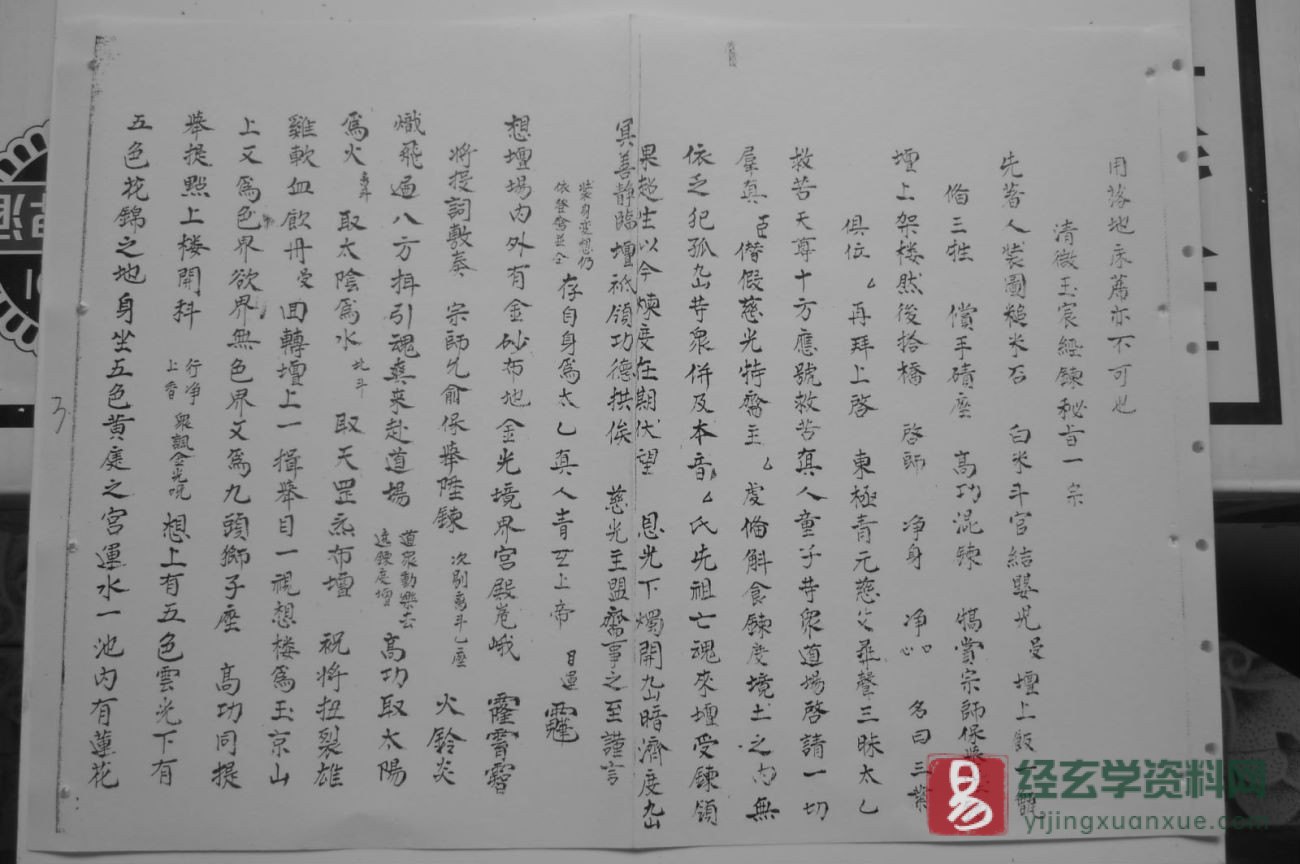 用落地床蓆亦不可也
清微玉宸經鍊秘旨一宗
先蓄人裝圖糙米石 白米斗官結嬰児 壇上飯一甑
俻三牲 償手磧座 高功混鍊 犒賞宗師保舉
壇上架楼然後拾橋 啓師 净身 净心 净口 名曰三業
俱位 厶再拜上啓 東極青元慈父尋聲三昧太乙
救苦天尊十方應號救苦真人童子䒭衆道場啓請一切
羣真 臣僭假慈光特齋主 厶虔俻斛食鍊度境土之内無
依乏祀孤䒭衆併及本音厶氏先祖亡魂來壇受鍊領
果超生以今煉度在期伏望 恩光下燭開暗濟度
冥善静臨壇祇領功德拱俟 慈光主盟齋事之至謹言
存自身為太乙真人青玄上帝 目運
想壇場内外有金砂布地金光境界宮殿嵬峨
將投詞敷奏 宗師允俞保舉陞鍊 次别斗乙座 火鈴炎
熾飛遍八方揖引魂真来赴道場 道衆動樂去 遶鍊度壇 高功取太陽
為火 取太陰為水 北斗 取天罡炁布壇 祝將扭裂雄
雞軟血飲丹 回轉壇上一揖舉目一視想楼為玉京山
上又為色界欲界無色界又為九頭獅子座 高功同提
舉提點上楼開科 行净 上香 衆諷金光咒 想上有五色雲光下有
五色花錦之地身坐五色黄庭之宮運水一池内有蓮花
3
易
经玄学资料网
yijingxuanxue.com